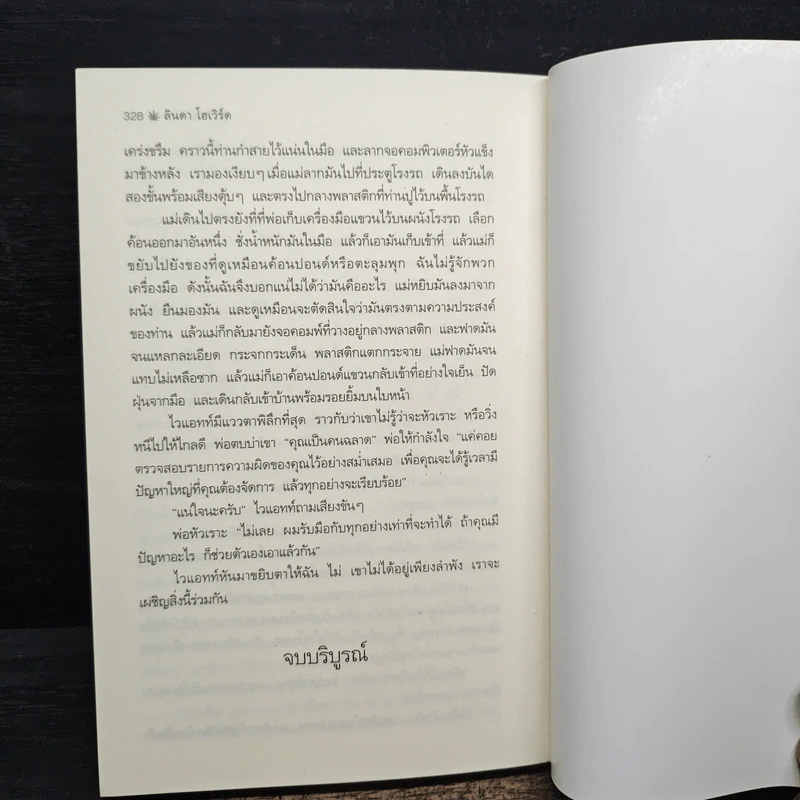 328 ลินดา โฮเวิร์ด
เคร่งขรึม คราวนี้ท่านกำสายไว้แน่นในมือ และลากจอคอมพิวเตอร์หัวแข็ง
มาข้างหลัง เรามองเงียบๆ เมื่อแม่ลากมันไปที่ประตูโรงรถ เดินลงบันได
สองขั้นพร้อมเสียงตุ้บๆ และตรงไปกลางพลาสติกที่ท่านปูไว้บนพื้นโรงรถ
แม่เดินไปตรงยังที่ที่พ่อเก็บเครื่องมือแขวนไว้บนผนังโรงรถ เลือก
ค้อนออกมาอันหนึ่ง ชั่งน้ำหนักมันในมือ แล้วก็เอามันเก็บเข้าที่ แล้วแม่ก็
ขยับไปยังของที่ดูเหมือนค้อนปอนด์หรือตะลุมพุก ฉันไม่รู้จักพวก
เครื่องมือ ดังนั้นฉันจึงบอกแน่ไม่ได้ว่ามันคืออะไร แม่หยิบมันลงมาจาก
ผนัง ยืนมองมัน และดูเหมือนจะตัดสินใจว่ามันตรงตามความประสงค์
ของท่าน แล้วแม่ก็กลับมายังจอคอมพ์ที่วางอยู่กลางพลาสติก และฟาดมัน
จนแหลกละเอียด กระจกกระเด็น พลาสติกแตกกระจาย แม่ฟาดมันจน
แทบไม่เหลือซาก แล้วแม่ก็เอาค้อนปอนด์แขวนกลับเข้าที่อย่างใจเย็น ปัด
ฝุ่นจากมือ และเดินกลับเข้าบ้านพร้อมรอยยิ้มบนใบหน้า
ไวแอทท์มีแววตาพิลึกที่สุด ราวกับว่าเขาไม่รู้ว่าจะหัวเราะ หรือวิ่ง
หนีไปให้ไกลดี พ่อตบบ่าเขา “คุณเป็นคนฉลาด” พ่อให้กำลังใจ “แค่คอย
ตรวจสอบรายการความผิดของคุณไว้อย่างสม่ำเสมอ เพื่อคุณจะได้รู้เวลามี
ปัญหาใหญ่ที่คุณต้องจัดการ แล้วทุกอย่างจะเรียบร้อย”
“แน่ใจนะครับ” ไวแอทท์ถามเสียงขันๆ
พ่อหัวเราะ “ไม่เลย ผมรับมือกับทุกอย่างเท่าที่จะทำได้ ถ้าคุณมี
ปัญหาอะไร ก็ช่วยตัวเองเอาแล้วกัน”
ไวแอทท์หันมาขยิบตาให้ฉัน ไม่ เขาไม่ได้อยู่เพียงลำพัง เราจะ
เผชิญสิ่งนี้ร่วมกัน
จบบริบูรณ์